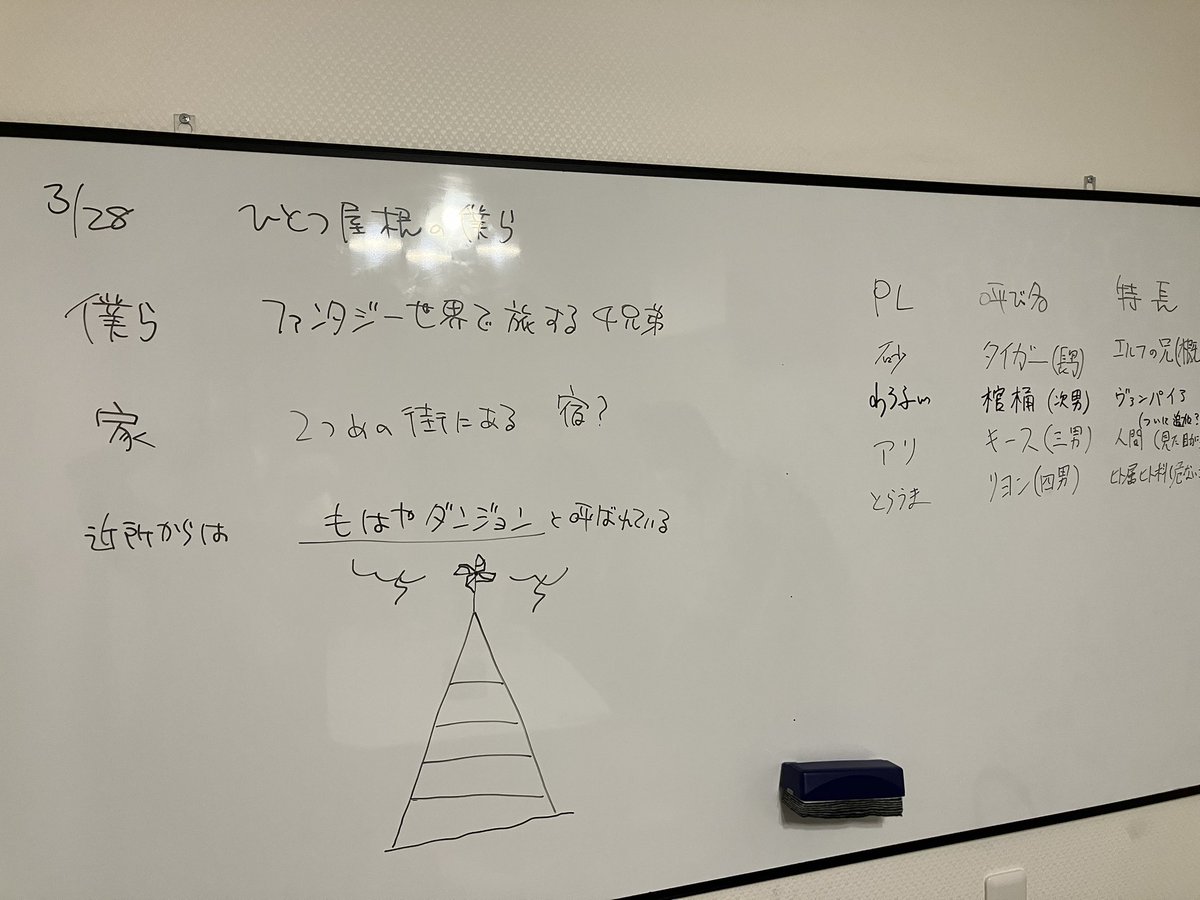 3/28 ひとつ屋根の僕ら
僕ら ファンタジー世界で旅する4兄弟
家 2つめの街にある 宿?
近所からは もはやダンジョンと呼ばれている
PL 呼び名 特長
砂 タイガー(長男) エルフの兄(概
棺桶(次男) ヴァンパイア
(ついに追加?
アリ キース(三男) 人間(見た目が
とらうま リヨン(四男) ヒト属ヒト科(危ない